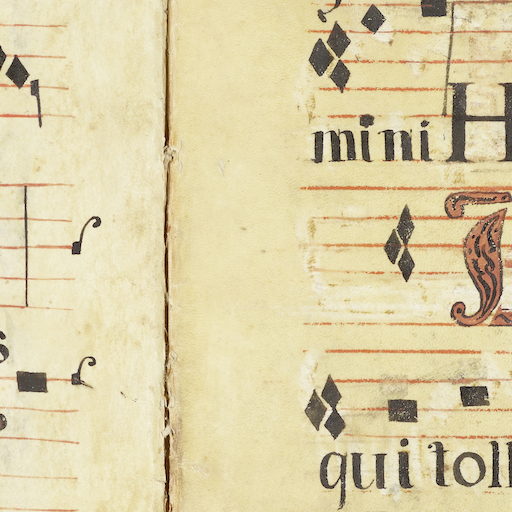 s
mini H
qui toll